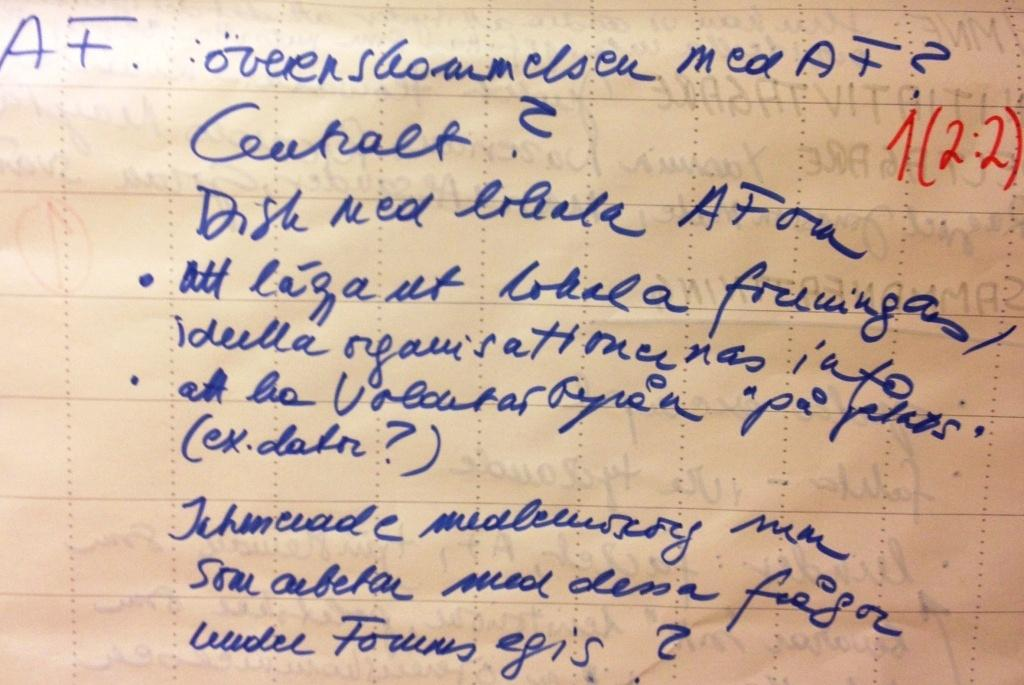 AF. överenskommelsen med AF?
Centralt?
1(2:2)
Disk med lokala AFom
• Att lägga ut lokala föreningars,
ideella organisationernas info
• att ha Volontärbyrån "på plats".
(ex. dator?)
som arbetar med dessa frågor
under Forums egis?